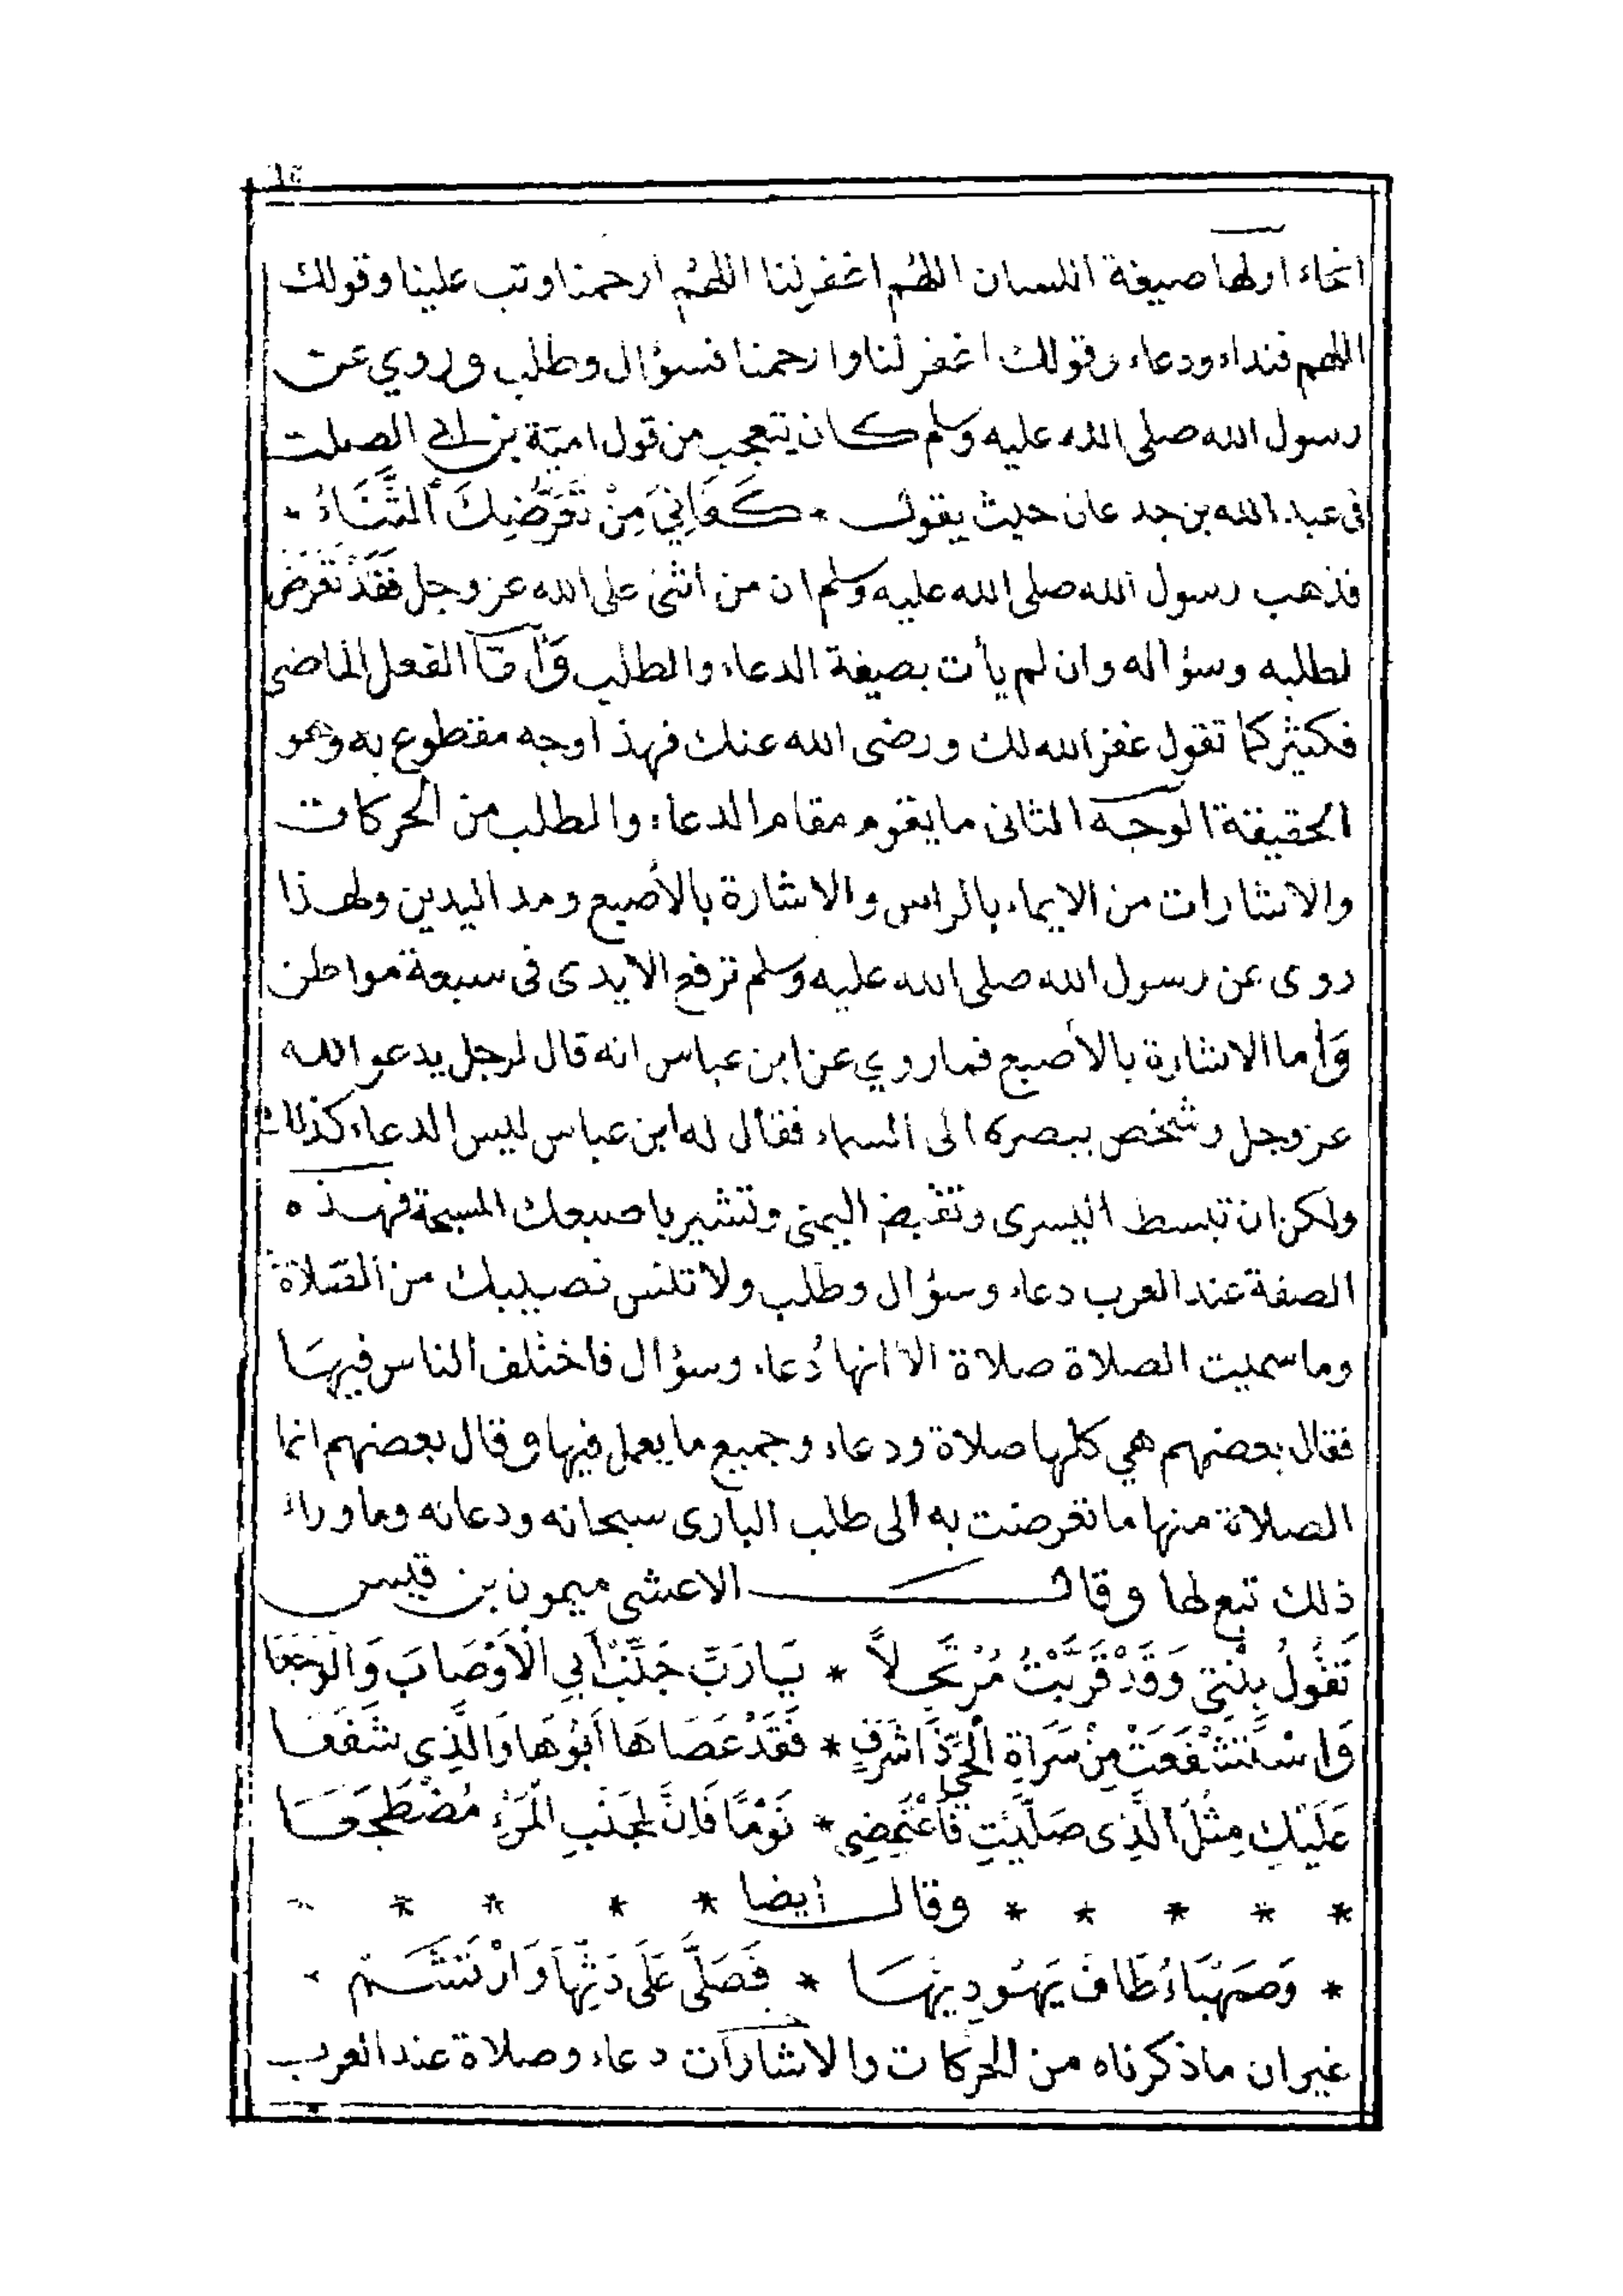 انحاء اولها صيغة اللسان اللهم اغفر لنا اللهم ارحمنا وتب علينا وقولك
اللهم فنداء ودعاء وقولك اغفر لنا وارحمنا فسؤال وطلب وروي عن
رسول الله صلى الله عليه وسلم كان يتعجب من قول امية بن ابي الصلت
فى عبد الله بن جدعان حيث يقول * كَفَانِيَ مِنْ تَعَرُّضِكَ ألثَّنَاءُ *
فذهب رسول الله صلى الله عليه وسلم ان من اثنى على الله عز وجل فَقَدْ تَعَرَضَ
لطلبه وسؤاله وان لم يأت بصيغة الدعاء والطلب وَأمَّا الفعل الماضى
فكثير كما تقول غفر الله لك ورضى الله عنك فهذا وجه مقطوع به وهو
الحقيقة الوجه الثانى ما يقوم مقام الدعاء والطلب من الحركات
والاشارات من الايماء بالراس والاشارة بالأصبع ومد اليدين ولهذا
روى عن رسول الله صلى الله عليه وسلم ترفع الايدى فى سبعة مواطن
وَأما الاشارة بالأصبع فما روي عن ابن عباس انه قال لرجل يدعو الله
عز وجل وشخص ببصره الى السماء فقال له ابن عباس ليس الدعاء كذلك
ولكن ان تبسط اليسرى وتقبض اليمنى وتشير باصبعك المسبحة فهذه
الصفة عند العرب دعاء وسؤال وطلب ولا تنس نصيبك من الصَّلاة
وما سميت الصلاة صلاة الا انها دُعاء وسؤال فاختلف الناس فيهَا
فقال بعضهم هي كلها صلاة ودعاء وجميع ما يعمل فيها وقال بعضهم انما
الصلاة منها ما تعرضت به الى طلب البارى سبحانه ودعائه وما وراء
ذلك تبع لها وقال الاعشى ميمون بن قيس
تَقُولُ بِنْتِي وَقَدْ قَرَّبْتُ مُرْتَحِلاً * يَارَبِّ جَنِّبْ أَبِي الْاَوْصَابَ وَالوَجَعَا
وَاسْتَشْفَعَتْ مِنْ سَرَاةِ الْحَيِّ ذَا شَرَفٍ * فَقَدْ عَصَاهَا أَبُوهَا وَالَّذِى شَفَعَا
عَلَيْكِ مِثْلُ الَّذِى صَلَّيْتِ فَاغْتَمِضِي * نَوْمًا فَاِنَّ لِجَنْبِ الْمَرْءِ مُضْطَجَعَا
* * * * * وقال ايضا * * * * *
* وَصَهْبَاءُ طَافَ يَهُودِيهَا * فَصَلَّى عَلَى دَنِّهَا وَارْتَشَم *
غير ان ما ذكرناه من الحركات والاشارات دعاء وصلاة عند العرب